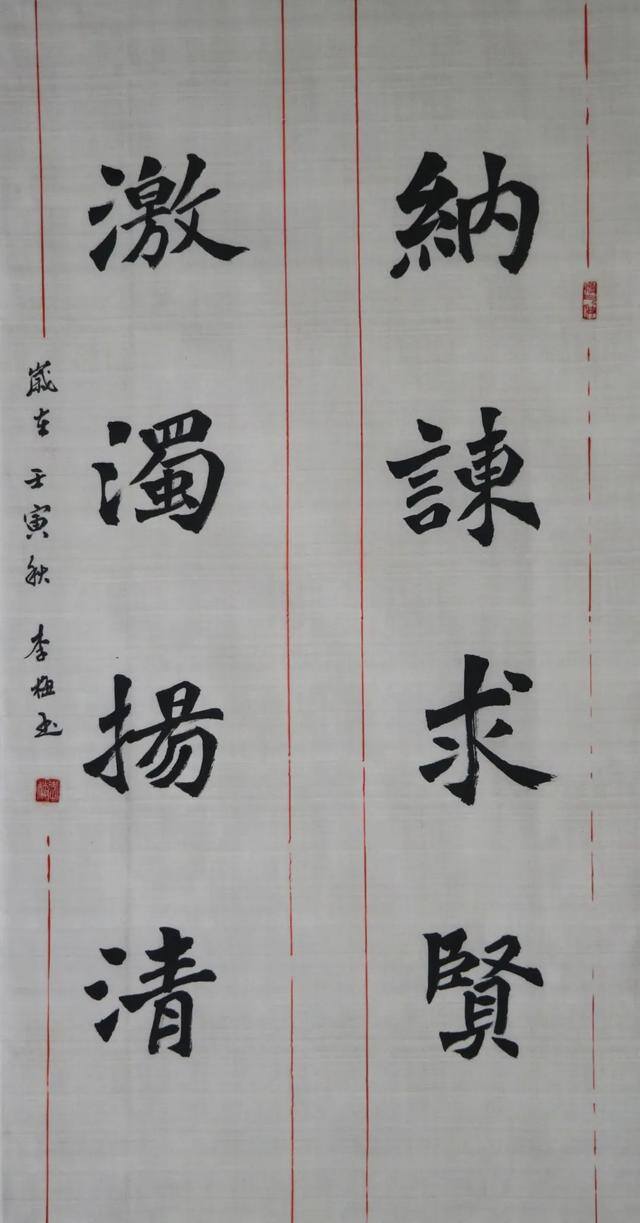 納諫求賢
激濁揚清
歲在壬寅秋 李